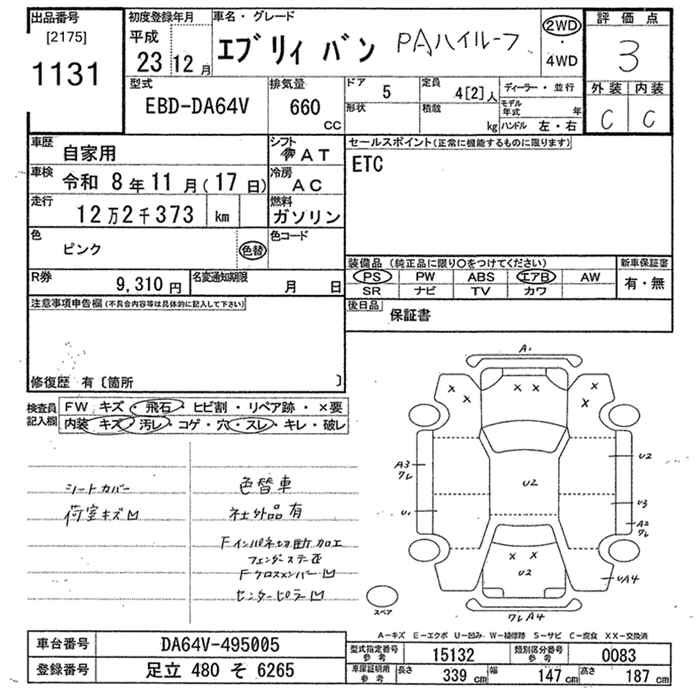 出品番号
[2175]
1131
初度登録年月
平成
23 12 月
車名・グレード
エブリィ バン PAハイルーフ
2WD
・
4WD
評価点
3
外装 内装
C C
型式
EBD-DA64V
排気量
660
cc
ドア
5
形状
定員
4[2]人
積載
kg
ディーラー・並行
モデル年式 年
ハンドル 左・右
車歴
自家用
シフト
AT
車検
令和 8年 11月(17日)
冷房
AC
走行
12万2千373 km
燃料
ガソリン
色
ピンク
色替
色コード
R券
9,310円
名変通知期限
月 日
セールスポイント(正常に機能するものに限ります)
ETC
装備品(純正品に限り○をつけてください)
PS PW ABS エアB AW
SR ナビ TV カワ
新車保証書
有・無
後日品
保証書
注意事項申告欄(不具合内容等は具体的に記入して下さい)
修復歴 有〔箇所 〕
検査員
記入欄
FW キズ・飛石・ヒビ割・リペア跡・×要
内装 キズ・汚レ・コゲ・穴・スレ・キレ・破レ
シートカバー
荷室キズ凹
色替車
社外品有
Fインパネ切断加工
フェンダーステー歪
Fクロスメンバー凹
センターピラー凹
A1
× ×
× ×
× ×
A3
ワレ
U2
U2
U1
U3
A2
ワレ
× ×
U2
UA4
ワレA4
スペア
A-キズ E-エクボ U-凹み W-補修跡 S-サビ C-腐食 XX-交換済
車台番号
DA64V-495005
登録番号
足立 480 そ 6265
型式指定番号
参考
15132
類別区分番号
参考
0083
車庫証明用
参考
長さ 339 cm 幅 147 cm 高さ 187 cm